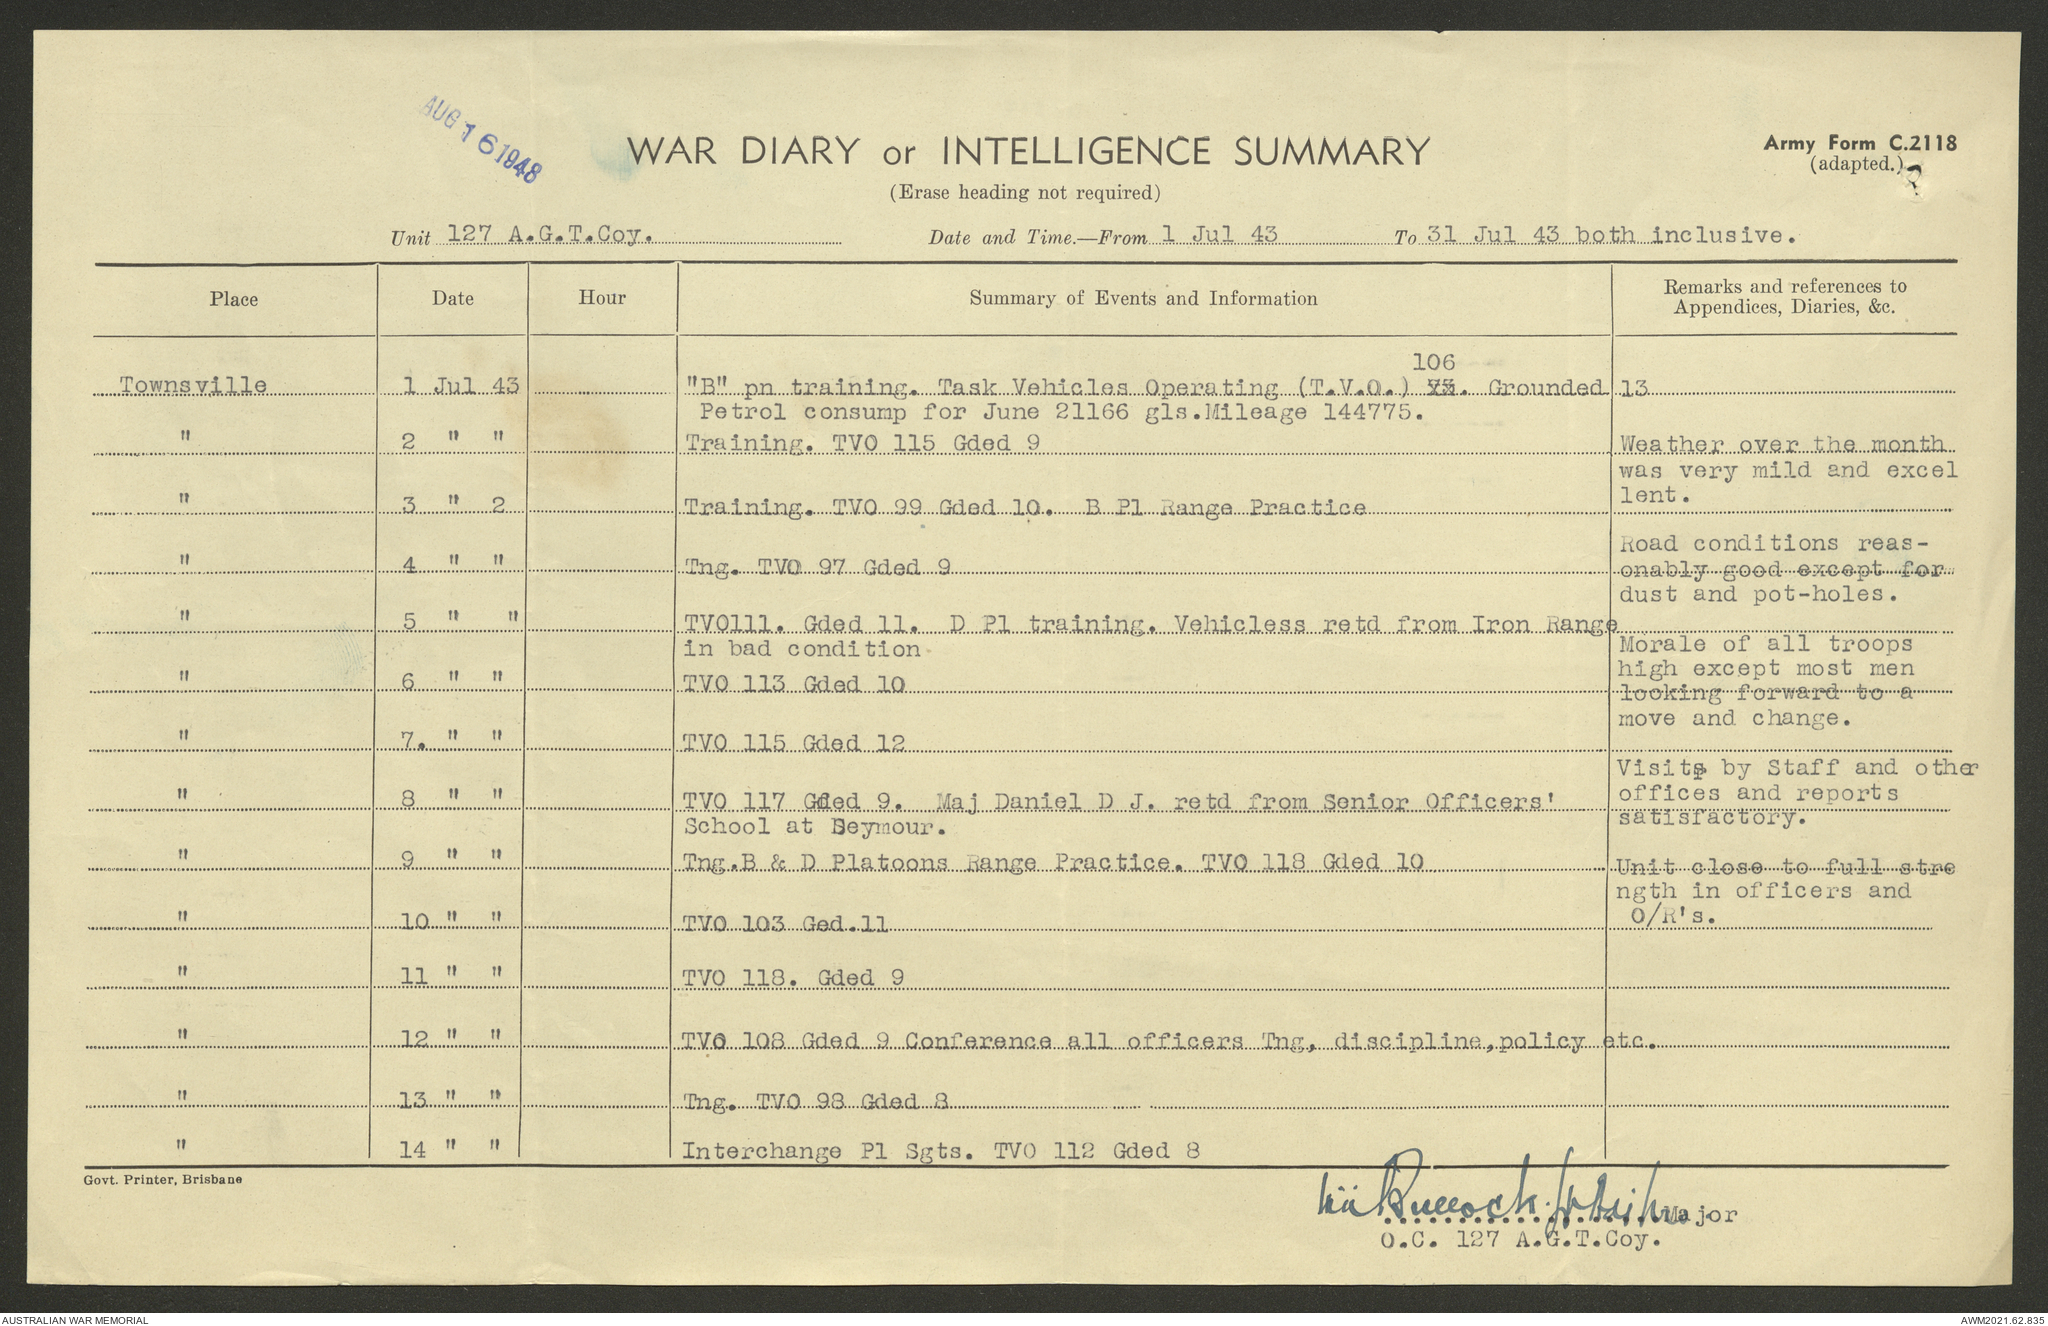 AUG 16 1948
WAR DIARY or INTELLIGENCE SUMMARY
Army Form C.2118
(adapted.)
(Erase heading not required)
Unit 127 A.G.T.Coy. Date and Time.—From 1 Jul 43 To 31 Jul 43 both inclusive.
Place Date Hour Summary of Events and Information Remarks and references to
Appendices, Diaries, &c.
106
Townsville 1 Jul 43 "B" pn training. Task Vehicles Operating (T.V.O.) . Grounded 13
Petrol consump for June 21166 gls.Mileage 144775.
" 2 " " Training. TVO 115 Gded 9 Weather over the month
was very mild and excel
lent.
" 3 " 2 Training. TVO 99 Gded 10. B Pl Range Practice
Road conditions reas-
" 4 " " Tng. TVO 97 Gded 9 onably good except for
dust and pot-holes.
" 5 " " TVO111. Gded 11. D Pl training. Vehicless retd from Iron Range
in bad condition Morale of all troops
high except most men
" 6 " " TVO 113 Gded 10 looking forward to a
move and change.
" 7. " " TVO 115 Gded 12
Visits by Staff and other
" 8 " " TVO 117 Gded 9. Maj Daniel D J. retd from Senior Officers' offices and reports
School at Seymour. satisfactory.
" 9 " " Tng.B & D Platoons Range Practice. TVO 118 Gded 10 Unit close to full stre
ngth in officers and
" 10 " " TVO 103 Ged.11 O/R's.
" 11 " " TVO 118. Gded 9
" 12 " " TVO 108 Gded 9 Conference all officers Tng, discipline,policy etc.
" 13 " " Tng. TVO 98 Gded 8
" 14 " " Interchange Pl Sgts. TVO 112 Gded 8
Govt. Printer, Brisbane
Major
O.C. 127 A.G.T.Coy.
AUSTRALIAN WAR MEMORIAL
AWM2021.62.835